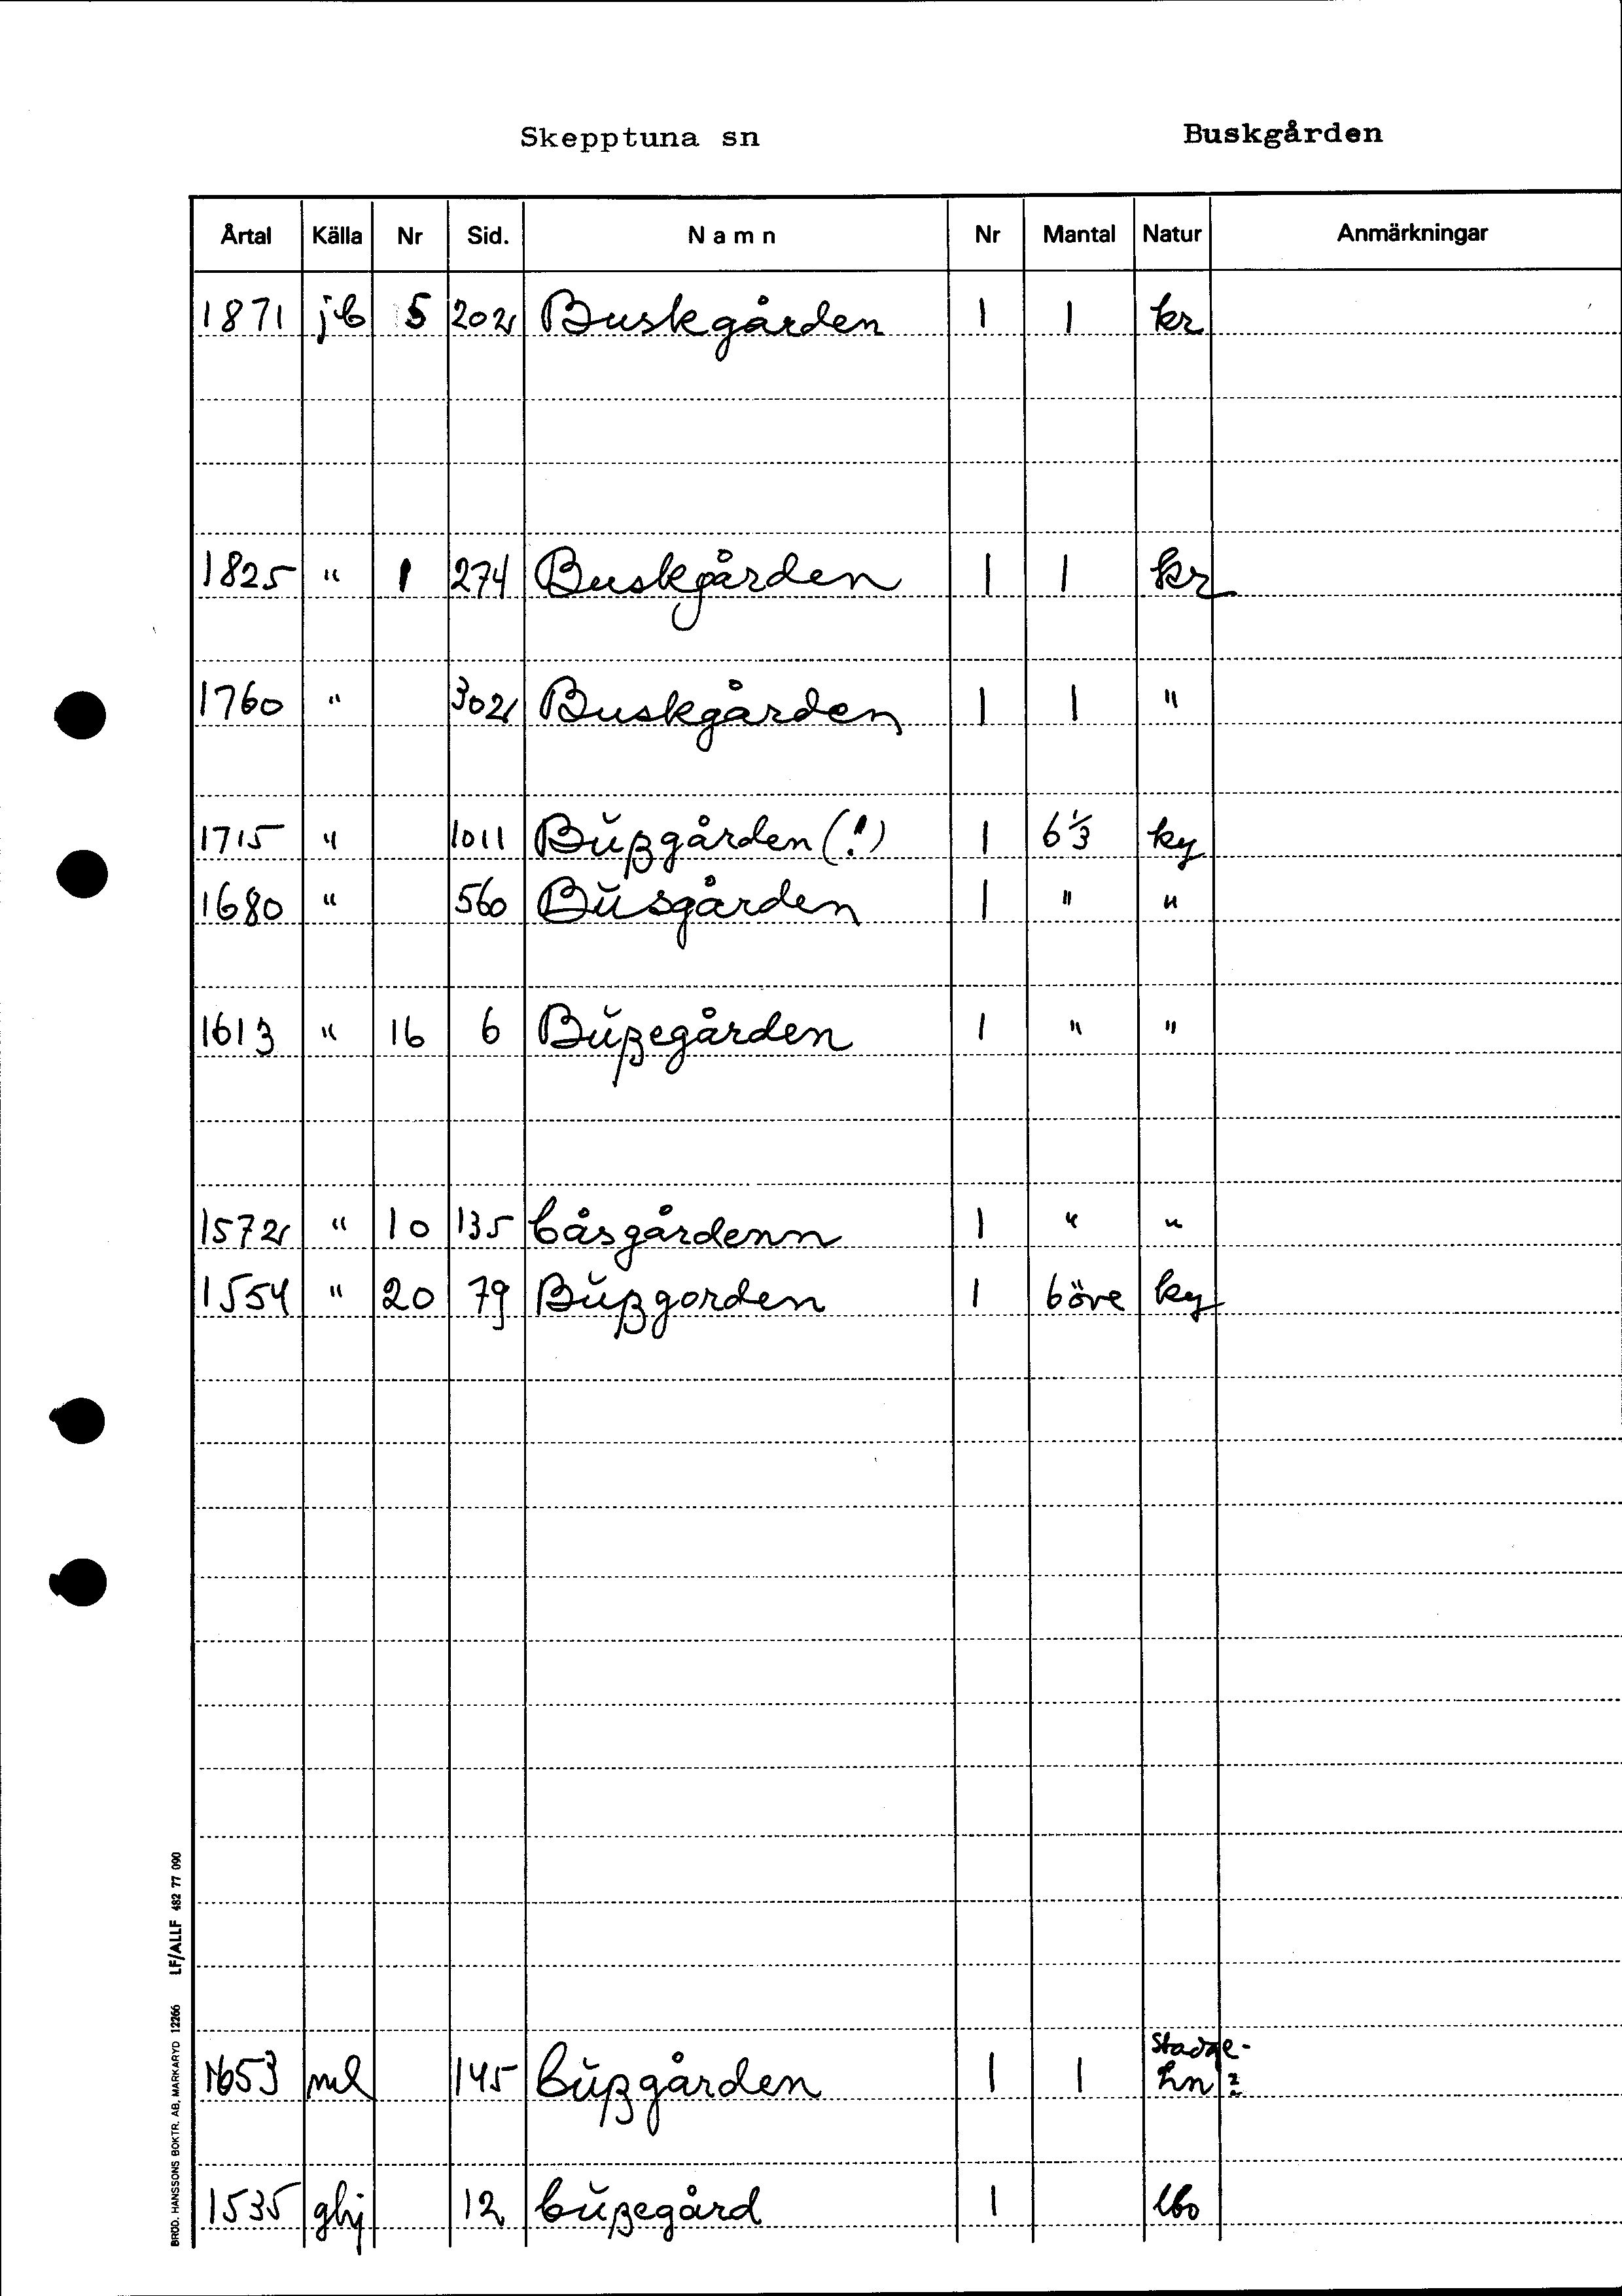 Skepptuna sn Buskgården
Årtal Källa Nr Sid. Namn Nr Mantal Natur Anmärkningar
1871 jb 5 202 Buskgården 1 1 kr
1825 " 1 274 Buskgården 1 1 kr
1760 " 302 Buskgården 1 1 "
1715 " 1011 Bŭβgården (!) 1 6 1/3 ky
1680 " 560 Bŭsgården 1 " "
1613 " 16 6 Bŭβegården 1 " "
1572 " 10 135 båsgårdenn 1 " "
1554 " 20 79 Bŭβgorden 1 6 öre ky
1653 ml 145 bŭβgården 1 1 Stadge-
hn?
1535 ghj 12 bŭβegård 1 lbo
BRÖD. HANSSONS BOKTR. AB, MARKARYD 12266 LF/ALLF 482 77 090